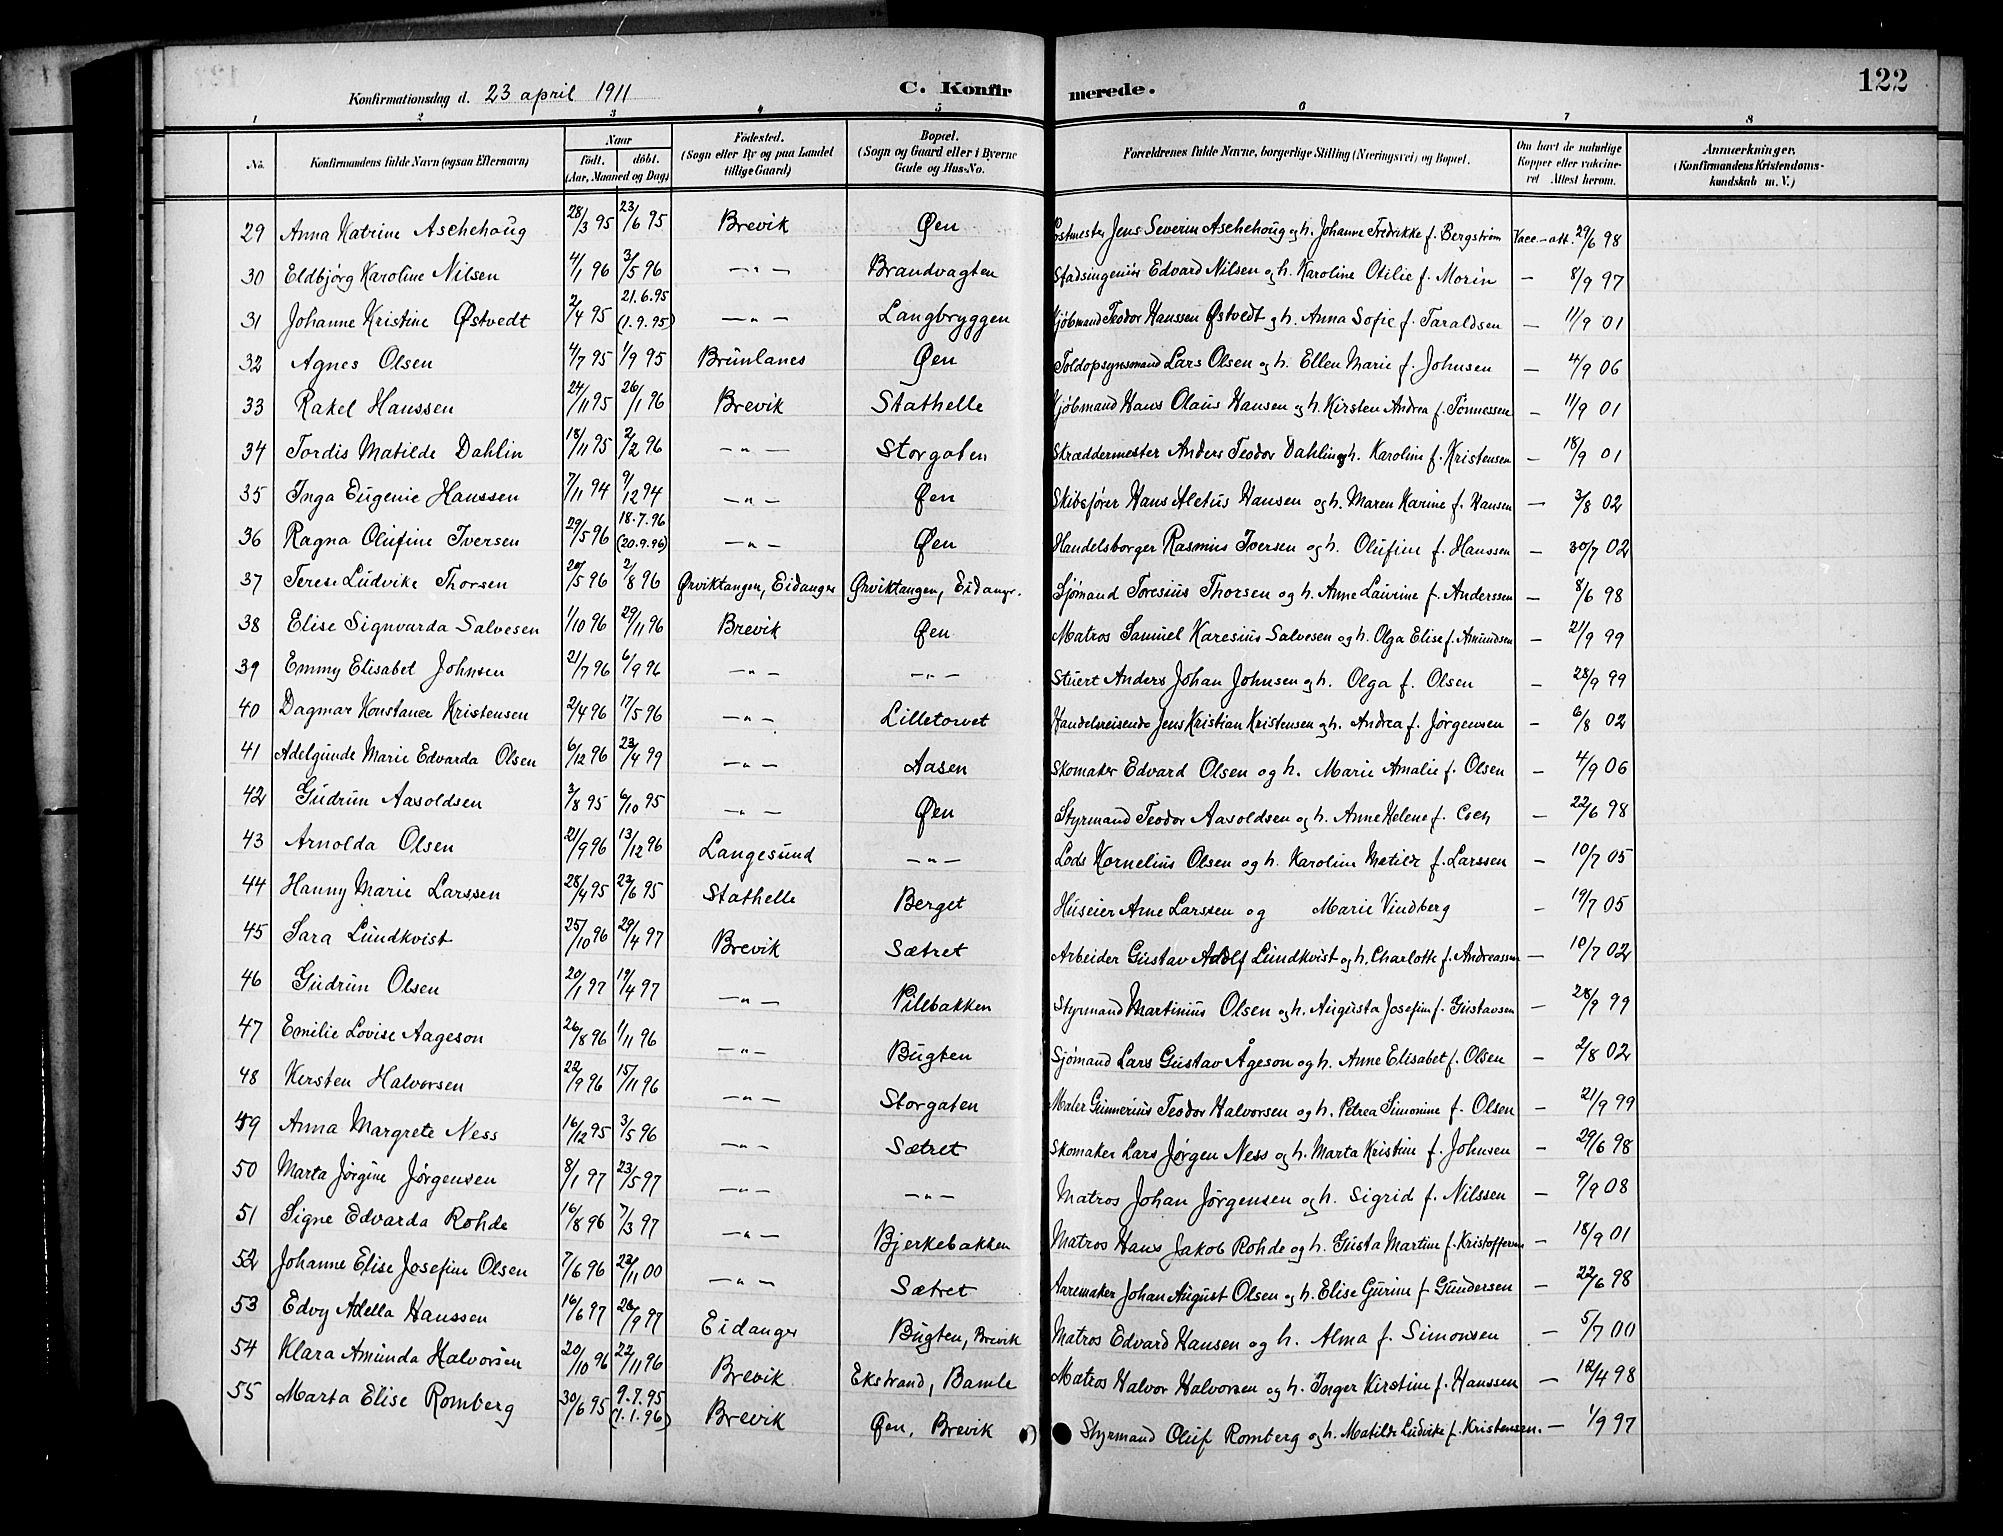 122
Konfirmationsdag d. 23 april 1911 C. Konfirmerede.
1 2 3 4 5 6 7 8
No. Konfirmandens fulde Navn (ogsaa Efternavn) Naar født. døbt. (Aar, Maaned og Dag) Fødested. (Sogn eller By og paa Landet tillige Gaard) Bopæl. (Sogn og Gaard eller i Byerne Gade og Hus-No. Forældrenes fulde Navne, borgerlige Stilling (Næringsvei) og Bopæl. Om havt de naturlige Kopper eller vaccineret Attest herom. Anmærkninger. (Konfirmandens Kristendomskundskab m. V.)
29 Anna Katrine Aschehoug 28/3 95 23/6 95 Brevik Øen Postmester Jens Severin Aschehoug og h. Johanne Fredrikke f. Bergstrøm Vacc-att. 29/6 98
30 Eldbjörg Karoline Nilsen 4/1 96 3/5 96 —"— Brandvagten Stadsingeniör Edvard Nilsen og h. Karoline Otilie f. Morin — 8/9 97
31 Johanne Kristine Østvedt 2/4 95 21.6.95 (1.9.95) —"— Langbryggen Kjöbmand Teodor Hanssen Østvedt og h. Anna Sofie f. Taraldsen — 11/9 01
32 Agnes Olsen 4/7 95 1/9 95 Brunlanes Øen Toldopsynsmand Lars Olsen og h. Ellen Marie f. Johnsen — 4/9 06
33 Rakel Hanssen 24/11 95 26/1 96 Brevik Stathelle Kjöbmand Hans Olaus Hansen og h. Kirsten Andrea f. Tönnessen — 11/9 01
34 Tordis Matilde Dahlin 18/11 95 2/2 96 —"— Storgaten Skræddermester Anders Teodor Dahlin og h. Karoline f. Kristensen — 18/9 01
35 Inga Eugenie Hanssen 7/11 94 9/12 94 —"— Øen Skibsförer Hans Aletus Hansen og h. Maren Karine f. Hansen — 3/8 02
36 Ragna Olufine Iversen 29/5 96 18.7.96 (20.9.96) —"— Øen Handelsborger Rasmus Iversen og h. Olufine f. Hanssen — 30/7 02
37 Terese Ludvike Thorsen 20/5 96 2/8 96 Ørviktangen, Eidanger Ørviktangen, Eidangr. Sjömand Toresius Thorsen og h. Anne Laurine f. Anderssen — 8/6 98
38 Elise Signvarda Salvesen 1/10 96 29/11 96 Brevik Øen Matros Samuel Karesius Salvesen og h. Olga Elise f. Amundsen — 21/9 99
39 Emmy Elisabet Johnsen 21/7 96 6/9 96 —"— —"— Stuert Anders Johan Johnsen og h. Olga f. Olsen — 28/9 99
40 Dagmar Konstance Kristensen 2/4 96 17/5 96 —"— Lilletorvet Handelsreisende Jens Kristian Kristensen og h. Andrea f. Jørgensen — 6/8 02
41 Adelgunde Marie Edvarda Olsen 6/12 96 23/4 99 —"— Aasen Skomaker Edvard Olsen og h. Marie Amalie f. Olsen — 4/9 06
42 Gudrun Aasoldsen 3/8 95 6/10 95 —"— Øen Styrmand Teodor Aasoldsen og h. Anne Helene f. — 22/6 98
43 Arnolda Olsen 21/9 96 13/12 96 Langesund —"— Lods Kornelius Olsen og h. Karoline Matilde f. Larssen — 10/7 05
44 Hanny Marie Larssen 28/4 95 23/6 95 Stathelle Berget Huseier Arne Larssen og Marie Vindberg — 19/7 05
45 Sara Lundkvist 25/10 96 29/4 97 Brevik Sætret Arbeider Gustav Adolf Lundkvist og h. Charlotte f. Andreassen — 10/7 02
46 Gudrun Olsen 20/1 97 19/4 97 —"— Pillbakken Styrmand Martinius Olsen og h. Augusta Josefine f. Gustavsen — 28/9 99
47 Emilie Lovise Aageson 26/8 96 1/11 96 —"— Bugten Sjömand Lars Gustav Ågeson og h. Anne Elisabet f. Olsen — 2/8 02
48 Kirsten Halvorsen 22/9 96 15/11 96 —"— Storgaten Maler Gunnerius Teodor Halvorsen og h. Petrea Simonine f. Olsen — 21/9 99
49 Anna Margrete Ness 16/12 95 3/5 96 —"— Sætret Skomaker Lars Jørgen Ness og h. Marta Kristine f. Johnsen — 29/6 98
50 Marta Jørgine Jørgensen 8/1 97 23/5 97 —"— —"— Matros Johan Jørgensen og h. Sigrid f. Nilssen — 9/9 08
51 Signe Edvarda Rohde 16/8 96 7/3 97 —"— Bjerkebakken Matros Hans Jakob Rohde og h. Gusta Martine f. Kristoffersen — 18/9 01
52 Johanne Elise Josefine Olsen 7/6 96 22/11 00 —"— Sætret Aaremaker Johan August Olsen og h. Elise Gurine f Gundersen — 22/6 98
53 Edvy Adella Hanssen 16/6 97 26/9 97 Eidanger Bugten, Brevik Matros Edvard Hansen og h. Alma f. Simonsen — 5/7 00
54 Klara Amunda Halvorsen 20/10 96 22/11 96 Brevik Ekstrand, Bamle Matros Halvor Halvorsen og h. Inger Kirstine f. Hanssen — 12/4 98
55 Marta Elise Romberg 30/6 95 9.7.95 (1.1.96) Brevik Øen, Brevik Styrmand Oluf Romberg og h. Matilde Ludvike f. Kristensen. — 1/9 97